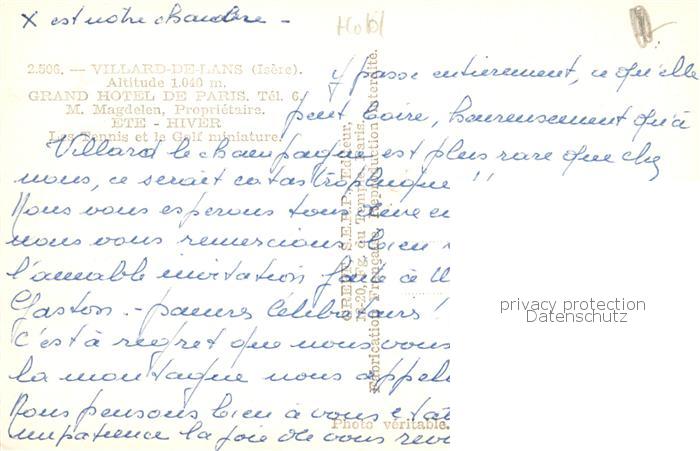 x est notre chambre -
Hotel
2.506. — VILLARD-DE-LANS (Isère).
Altitude 1.040 m.
GRAND HOTEL DE PARIS. Tél. 6.
M. Magdelen, Propriétaire.
ETE - HIVER
Les Tennis et le Golf miniature.
y passe entièrement, ce qu'elle
peut boire, heureusement qu'à
Villard le champagne est plus rare que chez
nous, ce serait catastrophique !!
Nous vous espérons tous
nous vous remercions bien
l'aimable invitation faite à
Gaston. - pauvres célibataires !
C'est à regret que nous vous
la montagne nous
Nous pensons bien à vous
impatience la joie de vous
GREFF, S.E.R.P., Editeur,
Fg. du Temple, Paris.
Fabrication Française. Reproduction interdite.
Photo véritable.
privacy protection
Datenschutz